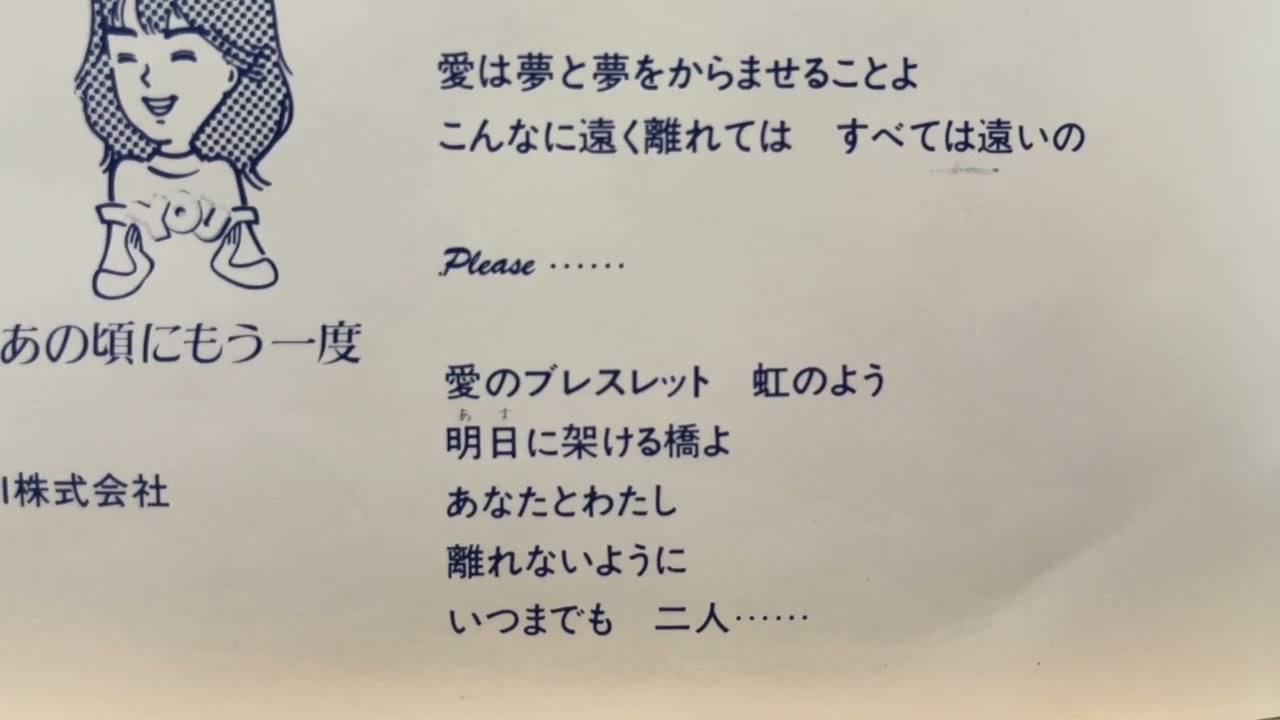 YOU
あの頃にもう一度
株式会社
愛は夢と夢をからませることよ
こんなに遠く離れては　すべては遠いの
Please ……
愛のブレスレット　虹のよう
あす
明日に架ける橋よ
あなたとわたし
離れないように
いつまでも　二人……